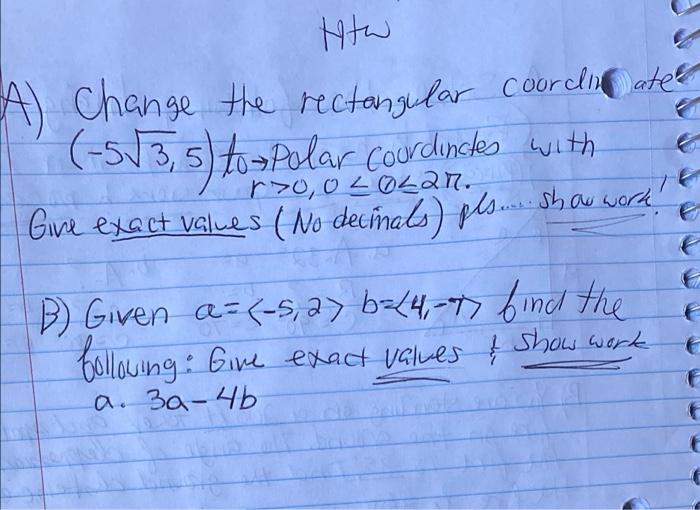 HW
A) Change the rectangular coordinate
(-5√3, 5) to→Polar Coordinates with
r>0, 0≤θ≤2π.
Give exact values (No decimals) pls.... show work!
B) Given a=<-5,2> b=<4,-7> find the
following: Give exact values & show work
a. 3a-4b